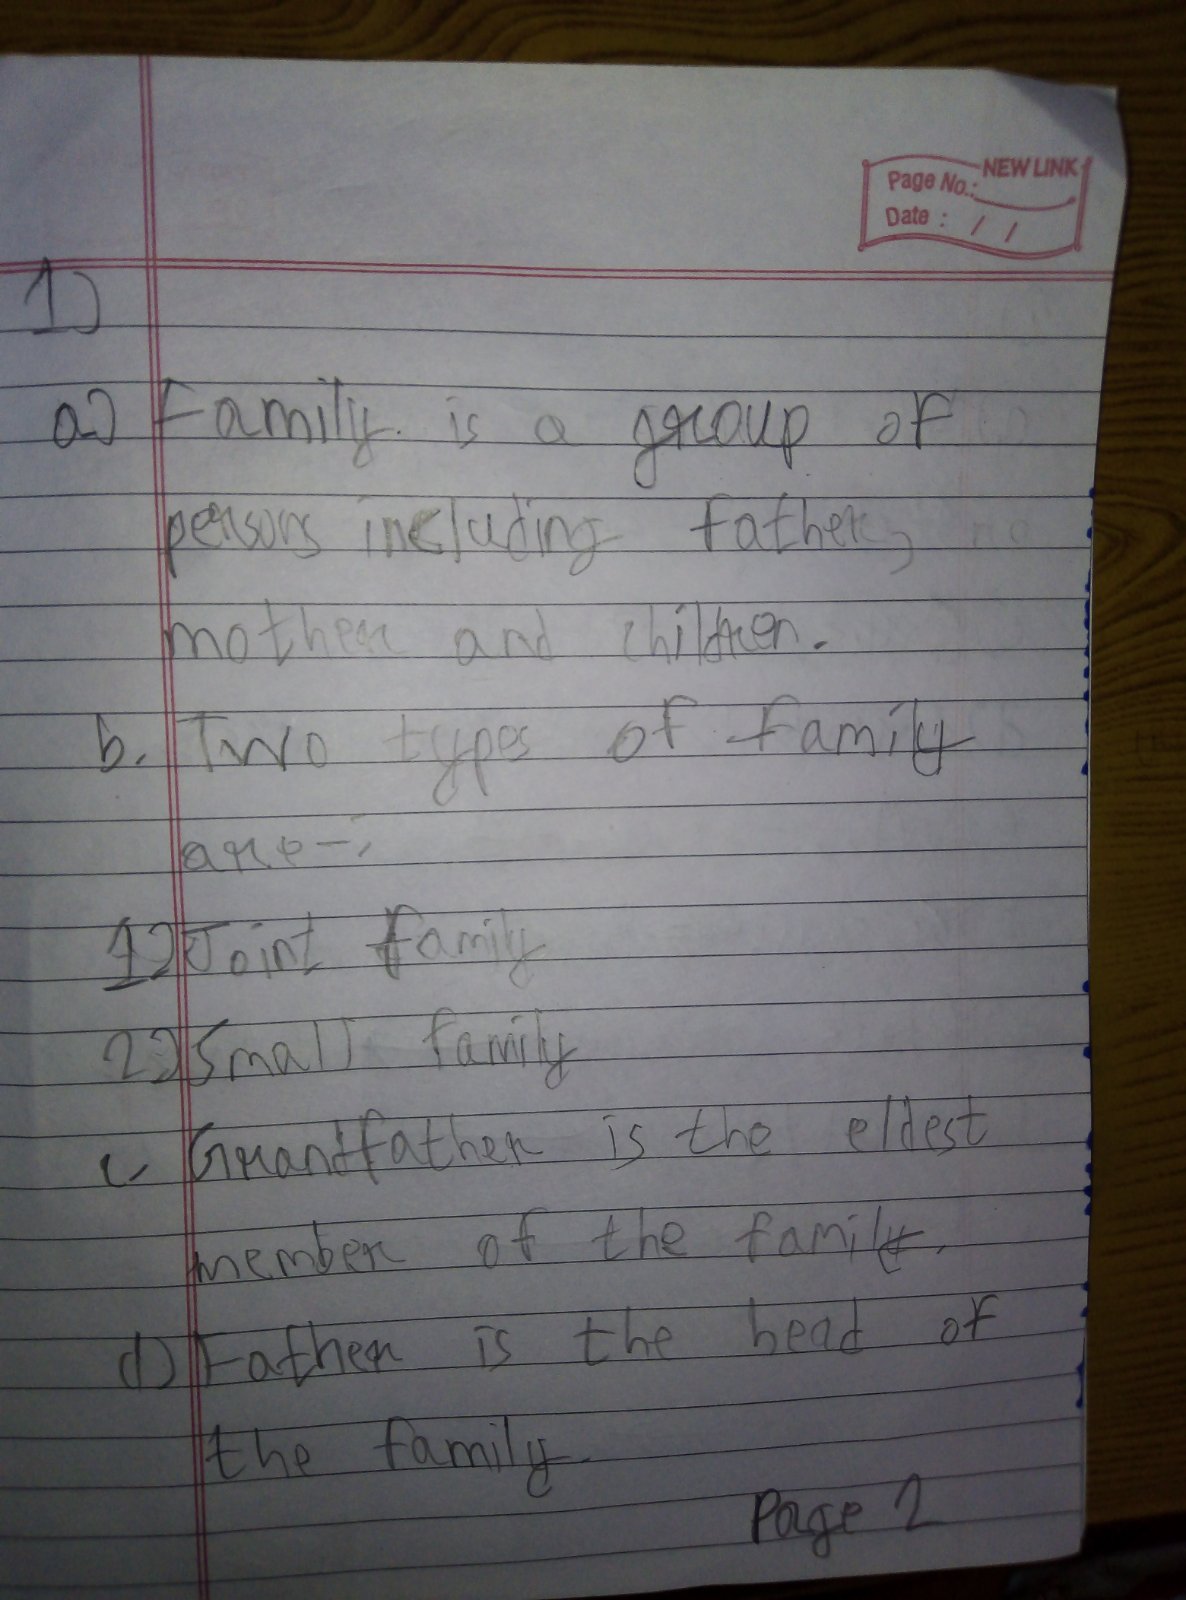 NEW LINK
Page No.:
Date : / /
1)
a) Family is a group of
persons including father,
mother and children.
b. Two types of family
are-:
1) Joint family
2) Small family
c. Grandfather is the eldest
member of the family.
d) Father is the head of
the family.
Page 2